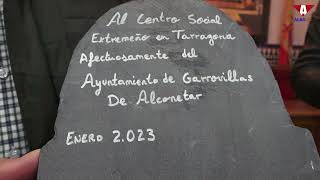 Al Centro Social
Extremeño en Tarragona
Afectuosamente del
Ayuntamiento de Garrovillas
De Alconetar
ENERO 2.023